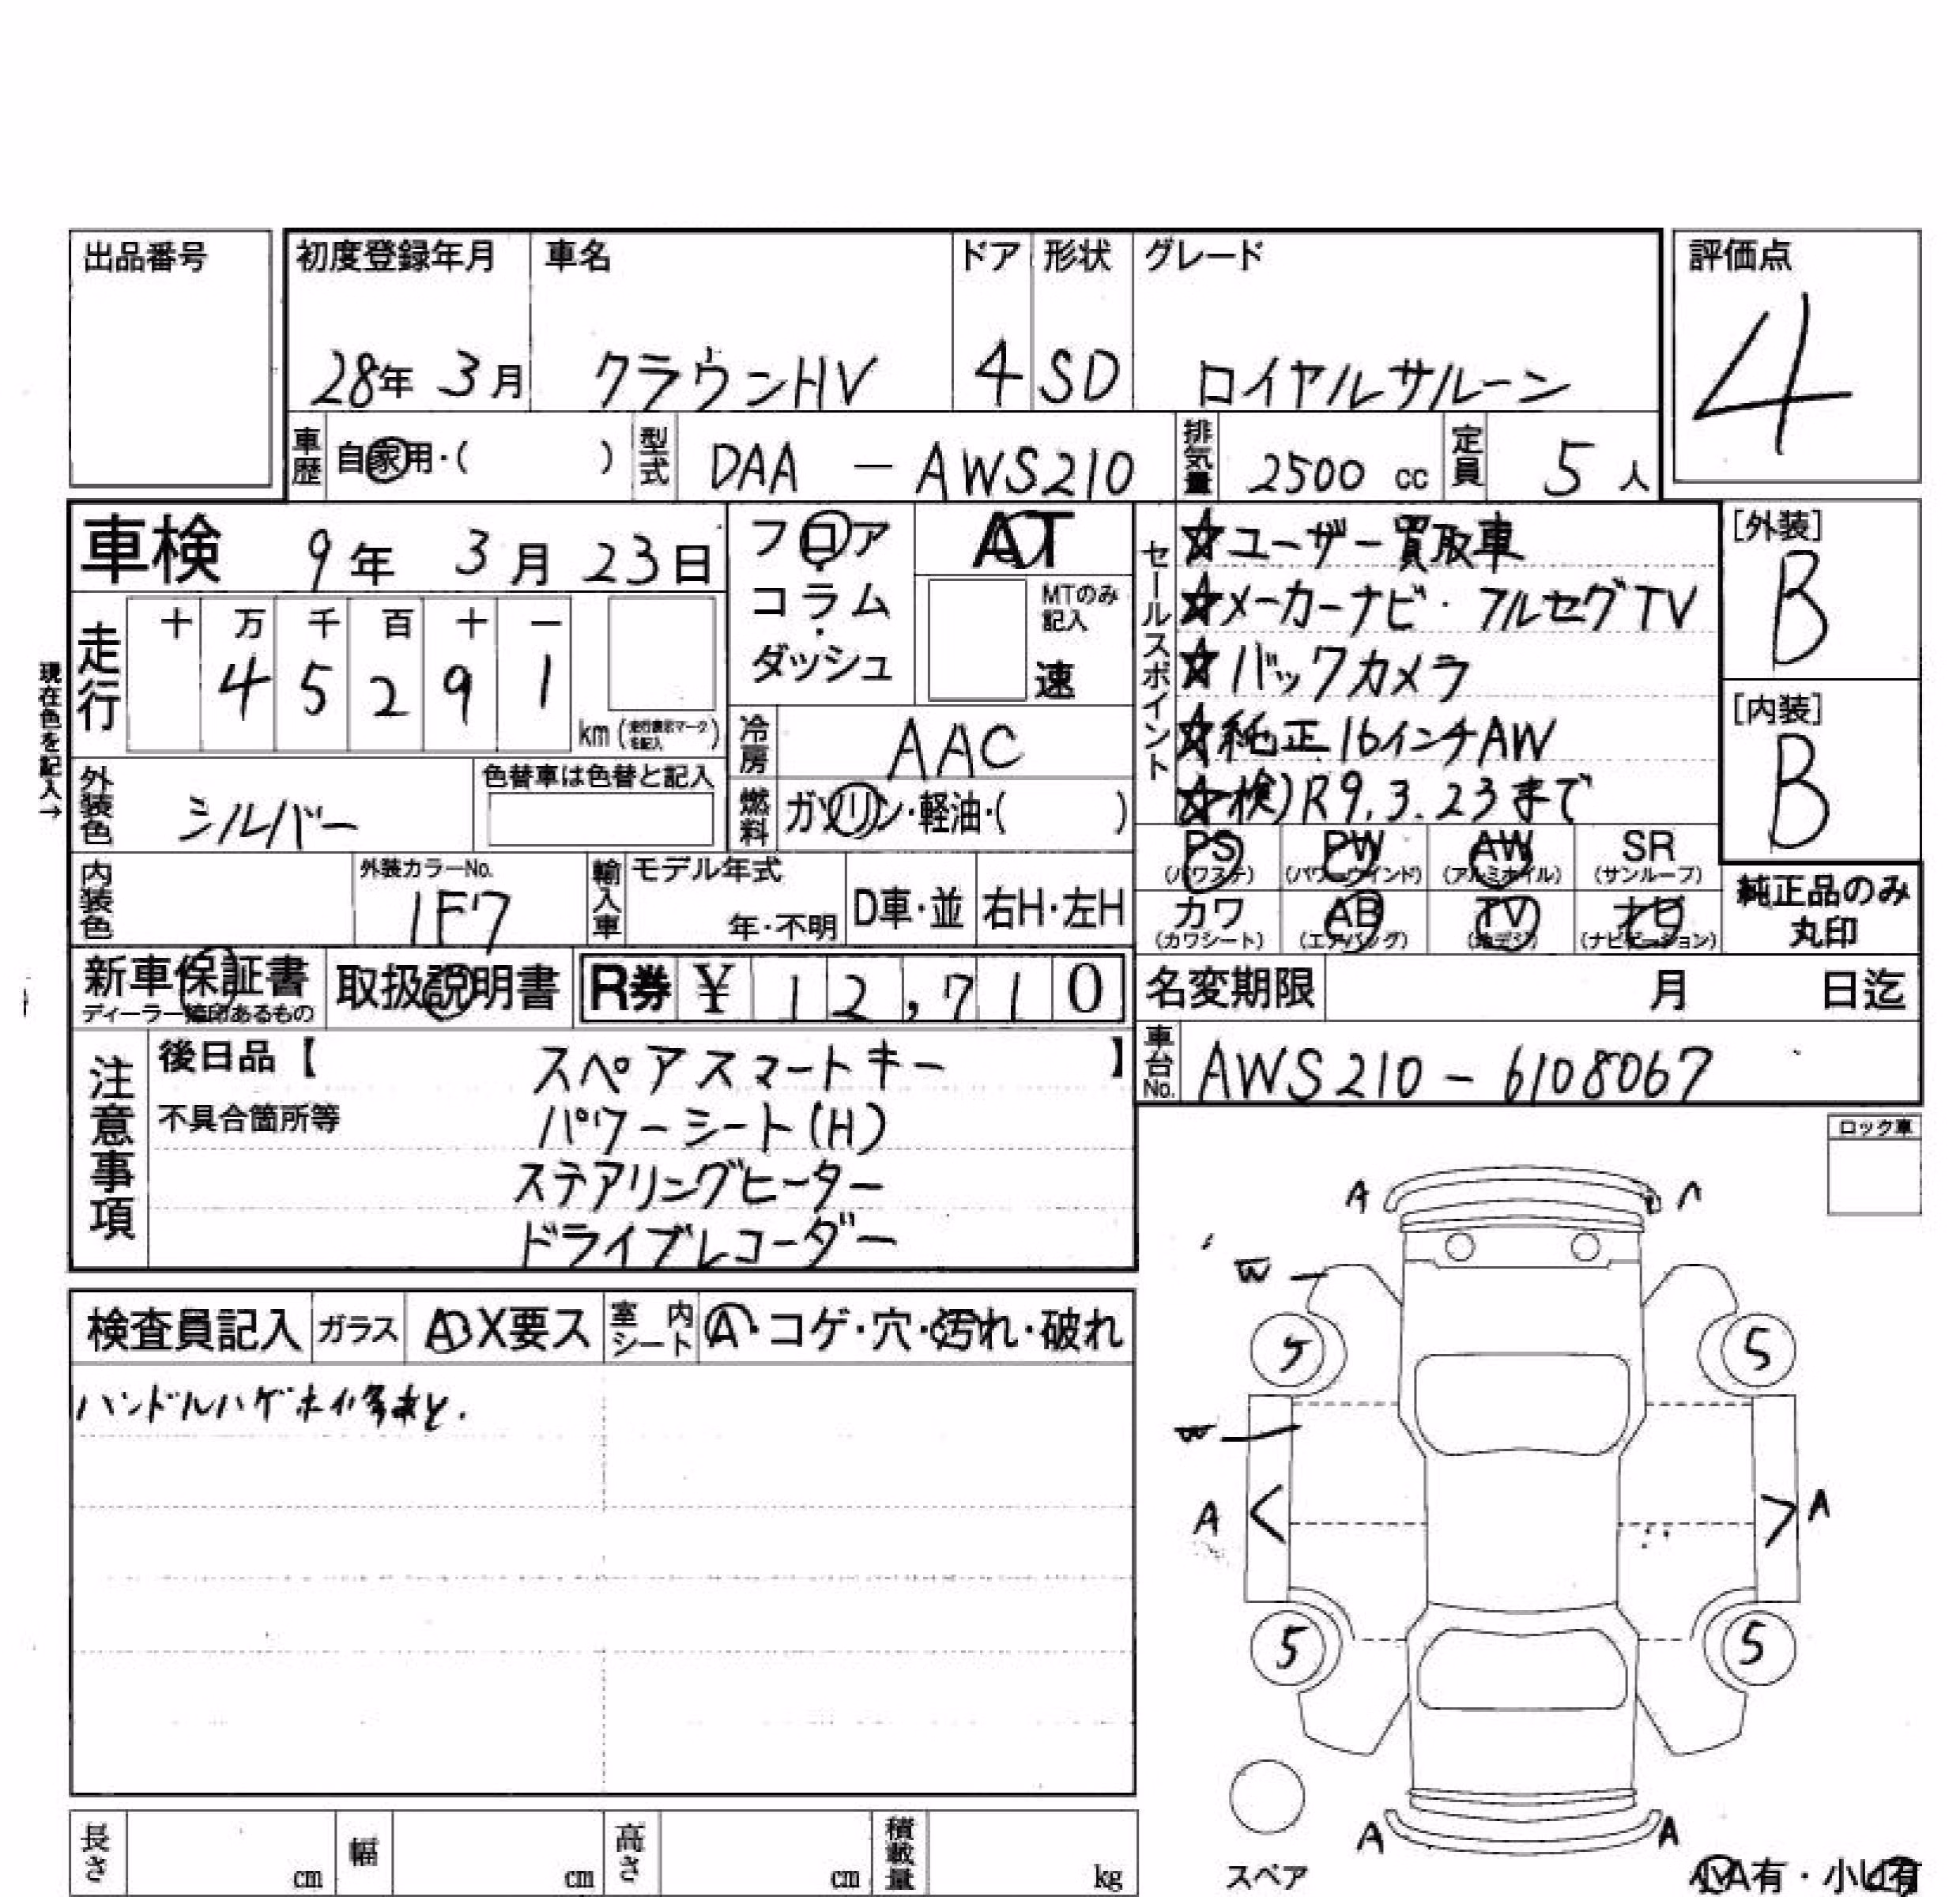 出品番号
初度登録年月 車名 ドア 形状 グレード 評価点
28年 3月 クラウンHV 4 SD ロイヤルサルーン 4
車歴 自家用・( ) 型式 DAA － AWS210 排気量 2500 cc 定員 5 人
車検 9年 3月 23日
フロア・コラム・ダッシュ
AT
MTのみ記入
速
走行 十 万 千 百 十 一
4 5 2 9 1
km (走行表示マークを記入)
現在色を記入→
冷房 AAC
外装色 シルバー 色替車は色替と記入
燃料 ガソリン・軽油・( )
内装色 外装カラーNo. 1F7 輸入車 モデル年式 年・不明 D車・並 右H・左H
セールスポイント
☆ユーザー買取車
☆メーカーナビ・フルセグTV
☆バックカメラ
☆純正16インチAW
☆検)R9.3.23まで
[外装] B
[内装] B
PS (パワステ) PW (パワーウインド) AW (アルミホイル) SR (サンルーフ)
カワ (カワシート) AB (エアバッグ) TV (地デジ) ナビ (ナビゲーション)
純正品のみ丸印
新車保証書 取扱説明書 R券 ¥ 12,710
ディーラー捺印あるもの
名変期限 月 日迄
車台No. AWS210-6108067
注意事項
後日品【 スペアスマートキー 】
不具合箇所等 パワーシート(H)
ステアリングヒーター
ドライブレコーダー
ロック車
検査員記入 ガラス A・X要ス 室内シート A・コゲ・穴・汚れ・破れ
ハンドルハゲ
A A
W
5 5
W
A A
5 5
A A
スペア
小A有・小U有
長さ cm 幅 cm 高さ cm 積載量 kg